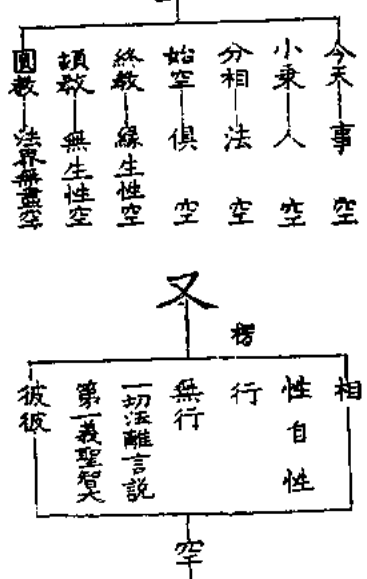 今天—事空
小乗—人空
分相—法空
始空—俱空
終教—緣生性空
頓教—無生性空
圓教—法界無盡空
又
楞
相
性自性
行
無行
一切法離言説
第一義聖智大
彼彼
空